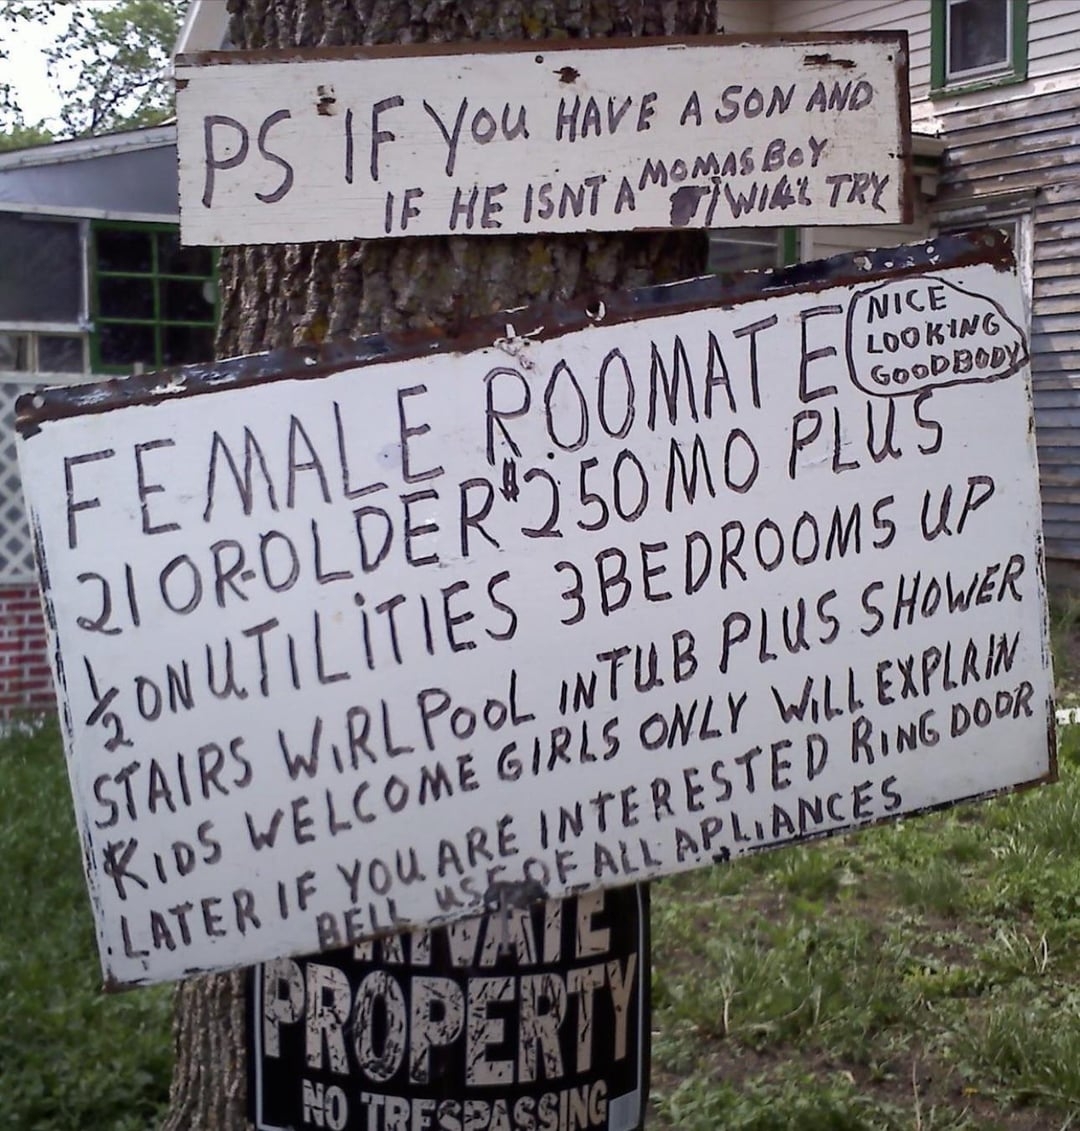 PS IF YOU HAVE A SON AND
IF HE ISNT A MOMAS BOY I WILL TRY
FEMALE ROOMATE
NICE
LOOKING
GOOD BODY
21 OR-OLDER $250 MO PLUS
1/2 ON UTILITIES 3 BEDROOMS UP
STAIRS WIRLPOOL IN TUB PLUS SHOWER
KIDS WELCOME GIRLS ONLY WILL EXPLAIN
LATER IF YOU ARE INTERESTED RING DOOR
BELL USE OF ALL APLIANCES
PRIVATE
PROPERTY
NO TRESPASSING